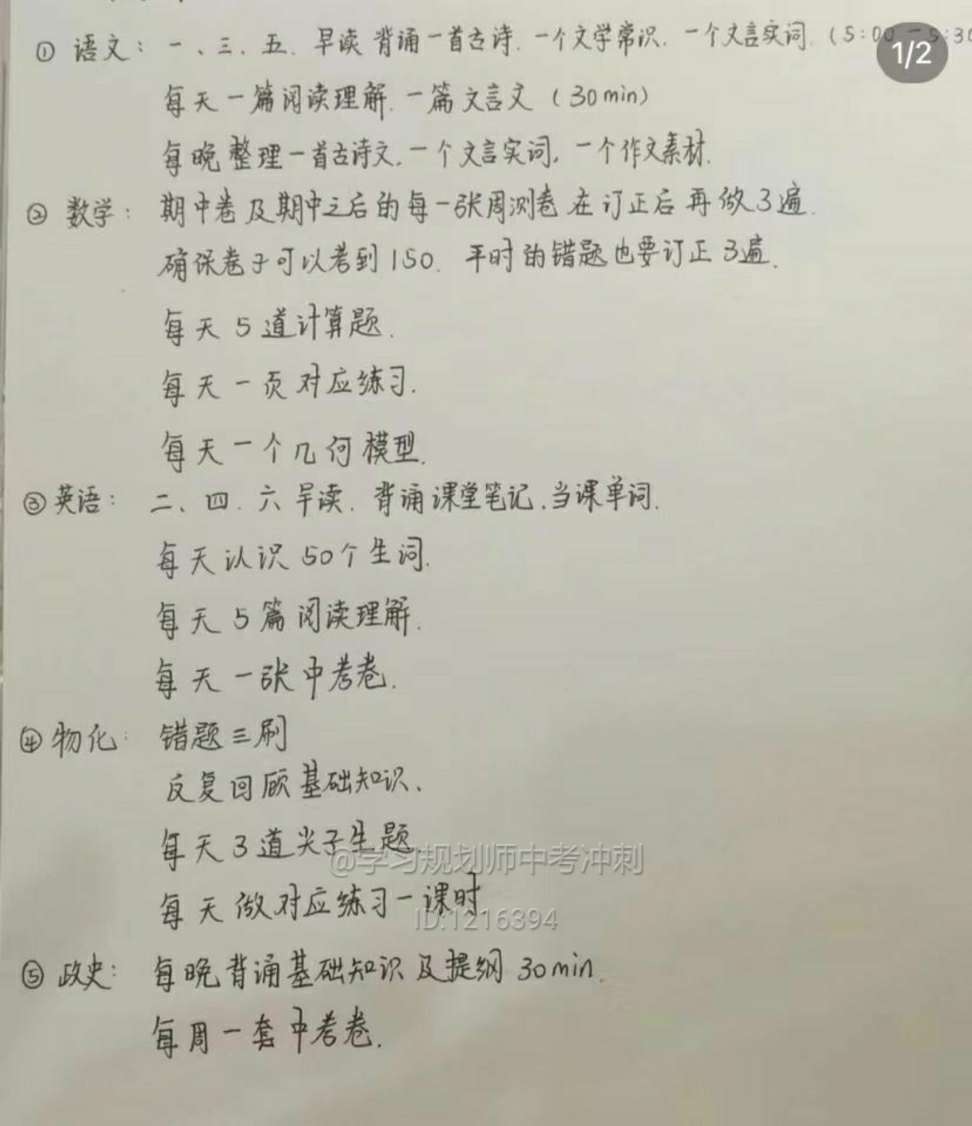 ① 语文: 一、三、五. 早读 背诵一首古诗. 一个文学常识. 一个文言实词. (5:00 — 5:30
1/2
每天一篇阅读理解. 一篇文言文 (30min)
每晚整理一首古诗文, 一个文言实词, 一个作文素材.
② 数学: 期中卷及期中之后的每一张周测卷在订正后再做3遍.
确保卷子可以考到150. 平时的错题也要订正3遍.
每天5道计算题.
每天一页对应练习.
每天一个几何模型.
③ 英语: 二、四. 六早读. 背诵课堂笔记.当课单词.
每天认识50个生词.
每天5篇阅读理解.
每天一张中考卷.
④ 物化: 错题三刷
反复回顾基础知识.
每天3道尖子生题.
@学习规划师中考冲刺
每天做对应练习一课时
ID:1216394
⑤ 政史: 每晚背诵基础知识及提纲30min.
每周一套中考卷.